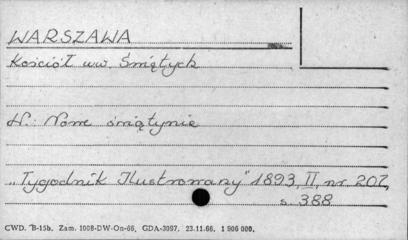 WARSZAWA
Kościół ww. Świętych
W: Nowe świątynie
„Tygodnik Ilustrowany" 1893, II, nr 207,
s. 388
CWD. B-15b. Zam. 1008-DW-On-66, GDA-3097. 23.11.66. 1 906 000.